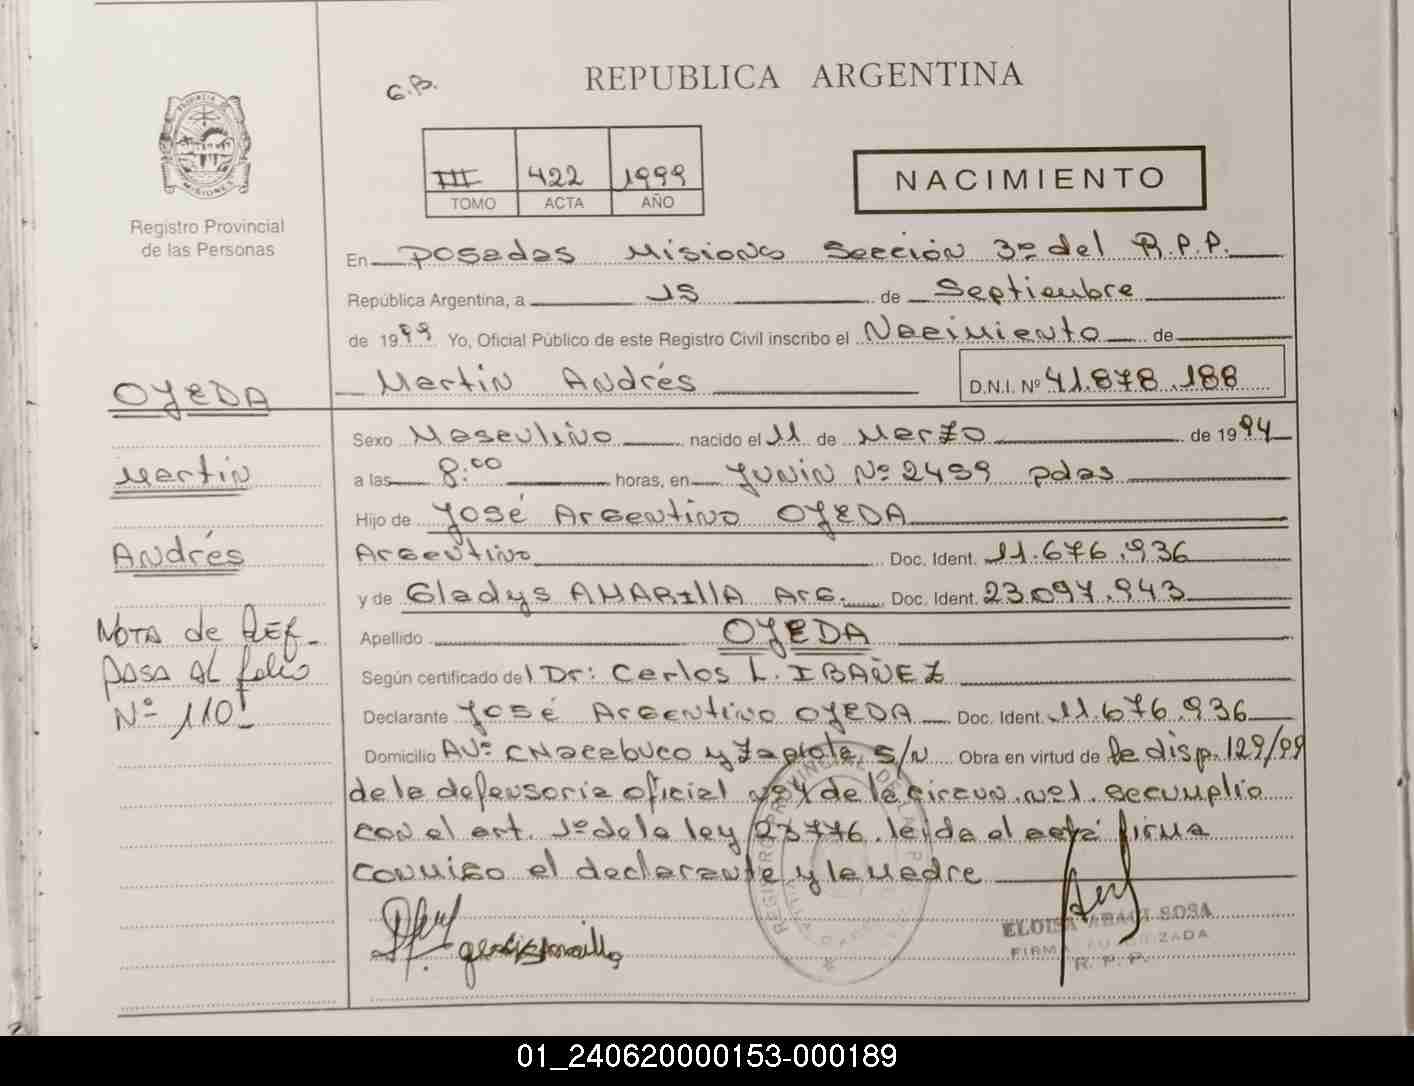 G.B.
REPUBLICA ARGENTINA
III 422 1999
TOMO ACTA AÑO
NACIMIENTO
PROVINCIA DE MISIONES
Registro Provincial
de las Personas
En Posadas Misiones Sección 3º del R.P.P.
República Argentina, a 15 de Septiembre
de 1999 Yo, Oficial Público de este Registro Civil inscribo el Nacimiento de
Martin Andrés D.N.I. Nº 41.878.188
OJEDA
Martin
Andrés
NOTA de REF.
PASA AL folio
Nº 110
Sexo Masculino nacido el 11 de Marzo de 1994
a las 8:00 horas, en Junin Nº 2459 pdas
Hijo de José Argentino OJEDA
Argentino Doc. Ident. 11.676.936
y de Gladys AMARILLA Arg. Doc. Ident. 23.097.943
Apellido OJEDA
Según certificado del Dr: Carlos L. IBAÑEZ
Declarante José Argentino OJEDA Doc. Ident. 11.676.936
Domicilio Avº CHacabuco y Zapiola s/N Obra en virtud de la disp. 129/99
de la defensoria oficial Nº4 de la circun. Nº1. se cumplio
con el art. 1º de la ley 23776. leida el acta firma
conmigo el declarante y la madre
REGISTRO PROVINCIAL DE LAS P
ELOISA ABAGI SOSA
FIRMA AUTORIZADA
R. P. P.
01_240620000153-000189